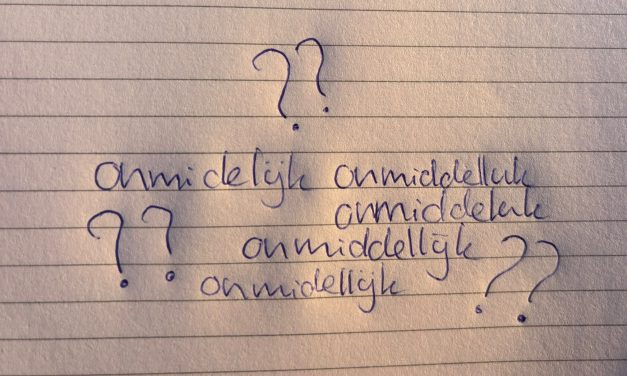 ??
onmidelijk onmiddelluk
onmiddeluk
?? onmiddellijk ??
onmidellijk